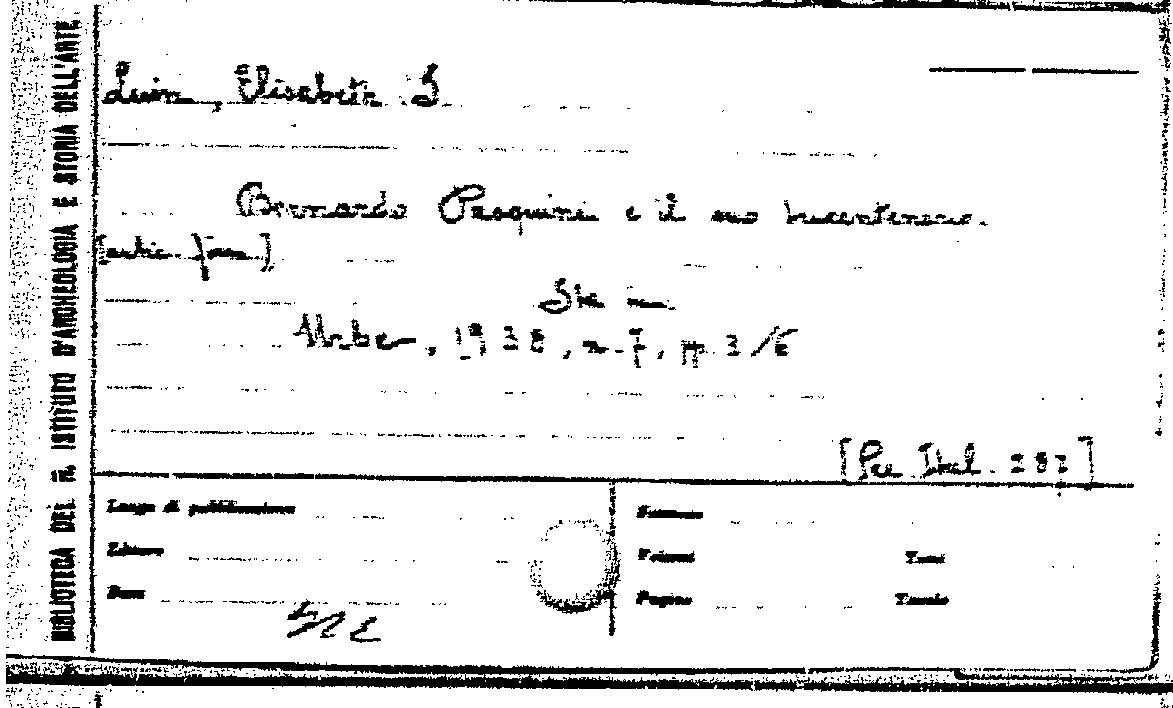 BIBLIOTECA DEL R. ISTITUTO D'ARCHEOLOGIA E STORIA DELL'ARTE
Luin, Elisabeth J.
Bernardo Pasquini e il suo tricentenario.
Sta in
Urbe, 1938, n. 7, pp. 3/6
[Per Ital.
Luogo di pubblicazione
Formato
Editore
Volumi
Tomi
Data
Pagine
Tavole